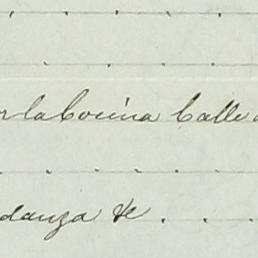 la Cocina Calle
danza &c